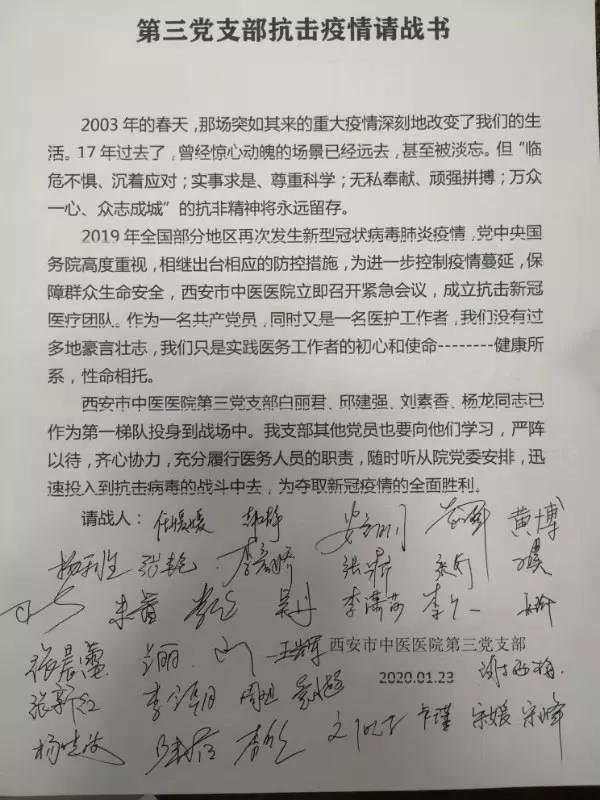 第三党支部抗击疫情请战书
2003 年的春天，那场突如其来的重大疫情深刻地改变了我们的生
活。17 年过去了，曾经惊心动魄的场景已经远去，甚至被淡忘。但“临
危不惧、沉着应对；实事求是、尊重科学；无私奉献、顽强拼搏；万众
一心、众志成城”的抗非精神将永远留存。
2019 年全国部分地区再次发生新型冠状病毒肺炎疫情，党中央国
务院高度重视，相继出台相应的防控措施，为进一步控制疫情蔓延，保
障群众生命安全，西安市中医医院立即召开紧急会议，成立抗击新冠
医疗团队。作为一名共产党员，同时又是一名医护工作者，我们没有过
多地豪言壮志，我们只是实践医务工作者的初心和使命--------健康所
系，性命相托。
西安市中医医院第三党支部白丽君、邱建强、刘素香、杨龙同志已
作为第一梯队投身到战场中。我支部其他党员也要向他们学习，严阵
以待，齐心协力，充分履行医务人员的职责，随时听从院党委安排，迅
速投入到抗击病毒的战斗中去，为夺取新冠疫情的全面胜利。
请战人： 任媛媛 黄博
张艳
吴丹 李潇莎
张晨蕾 西安市中医医院第三党支部
张新红 2020.01.23 谢西梅
杨晓波 卞瑾 宋媛 宋峰